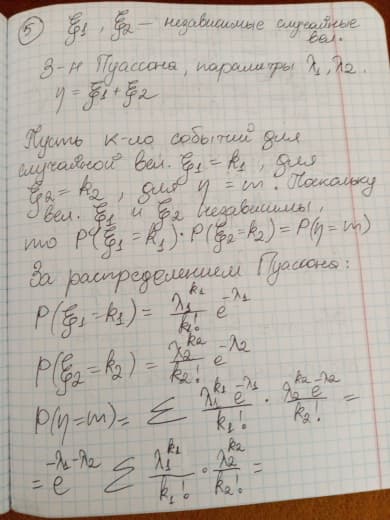 ⑤ ξ₁, ξ₂ – независимые случайные
вел.
З-н Пуассона, параметры λ₁, λ₂.
η = ξ₁ + ξ₂
Пусть к-ло событий для
случайной вел. ξ₁ = k₁, для
ξ₂ = k₂, для η = m. Поскольку
вел. ξ₁ и ξ₂ независимы,
то P(ξ₁ = k₁) · P(ξ₂ = k₂) = P(η = m)
За распределением Пуассона:
P(ξ₁ = k₁) = λ₁^k₁ / k₁! e^-λ₁
P(ξ₂ = k₂) = λ₂^k₂ / k₂! e^-λ₂
P(η = m) = Σ λ₁^k₁ e^-λ₁ / k₁! · λ₂^k₂ e^-λ₂ / k₂! =
= e^-λ₁-λ₂ Σ λ₁^k₁ / k₁! · λ₂^k₂ / k₂! =